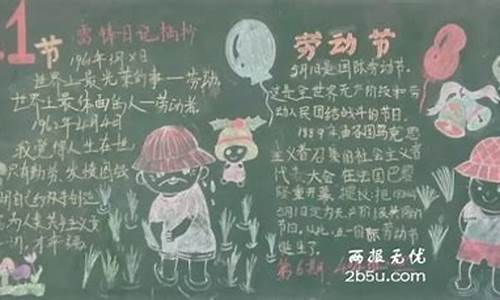 .1节
雷锋日记摘抄
1961年4月×日
世界上最光荣的事—劳动
世界上最体面的人—劳动者
1962年4月4日
我觉得人生在世
只有勤劳,发愤图强
用自己的双手创造
为人类共产主义
劳动节
5月1日是国际劳动节.
这是全世界无产阶级和劳
动人民团结战斗的节日.
1889年由各国马克思
主义者召集的社会主义者
代表大会在法国巴黎
隆重开幕
5月1日定为
节日.从此,这一国际劳动节
诞生了.
第6期
两报无忧
2b5u.com